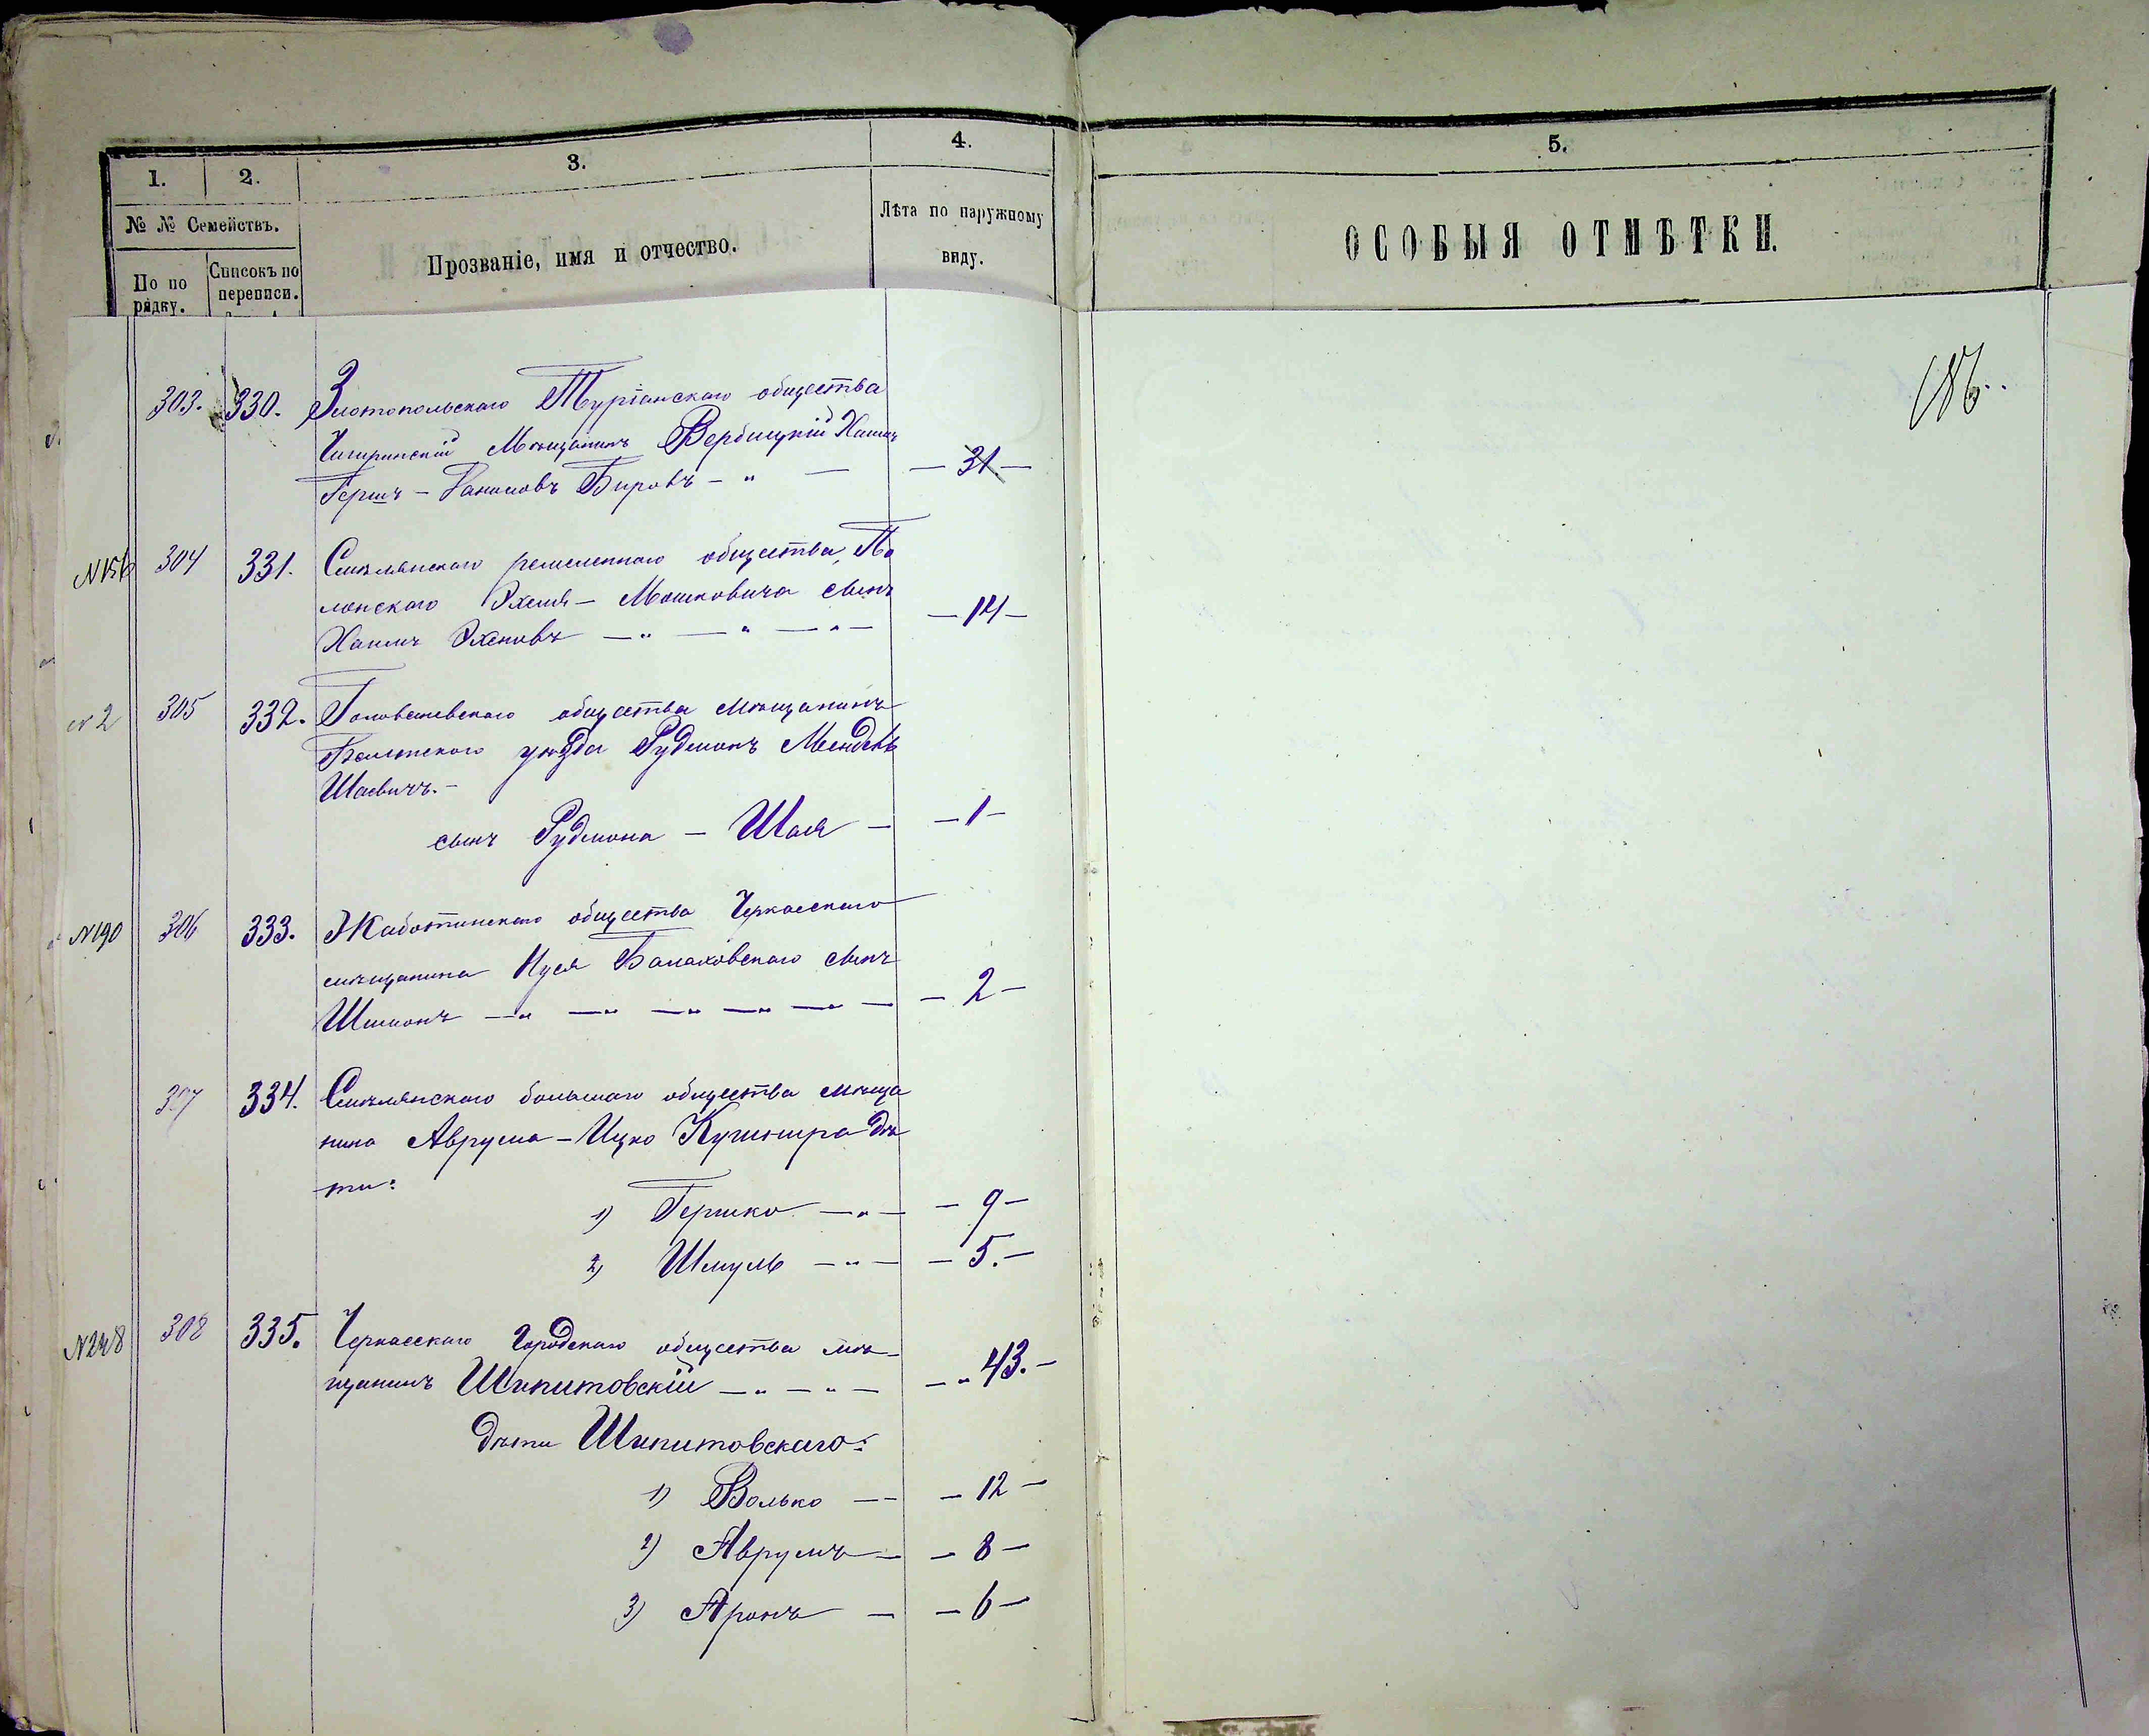 1.
2.
3.
4.
5.
№ № Семействъ.
По по
рядку.
Списокъ по
переписи.
Прозваніе, имя и отчество.
Лѣта по наружному
виду.
ОСОБЫЯ ОТМѢТКИ.
186
303. 330. Златопольскаго Туріанскаго общества
Чигиринскій Мѣщанинъ Вербицкій Хаимъ
Гершъ - Бировъ - „ - - 31. -
N156 304 331. Смѣлянскаго ремесленнаго общества По
лонскаго - Мошковича сынъ
Хаимъ - „ - „ - „ - - 14 -
№ 2 305 332. общества мѣщанинъ
уѣзда Рудманъ Мендель
Шаевичъ. -
сынъ Рудмана - Шая - - 1 -
N190 306 333. Жаботинскаго общества Черкасскаго
мѣщанина Нуся Балаховскаго сынъ
Шимонъ - „ - „ - „ - „ - „ - - 2 -
307 334. Смѣлянскаго большаго общества мѣща
нина Аврума - Ицко Кушнира дѣ
ти:
1) Гершко - „ - - 9 -
2) Шмуль - „ - - 5. -
N248 308 335. Черкасскаго Городскаго общества мѣ-
щанинъ Шпитовскій - „ - „ - - „ 43. -
дѣти Шпитовскаго:
1) Волько - - - 12 -
2) Аврумъ - - 8 -
3) Аронъ - - 6 -